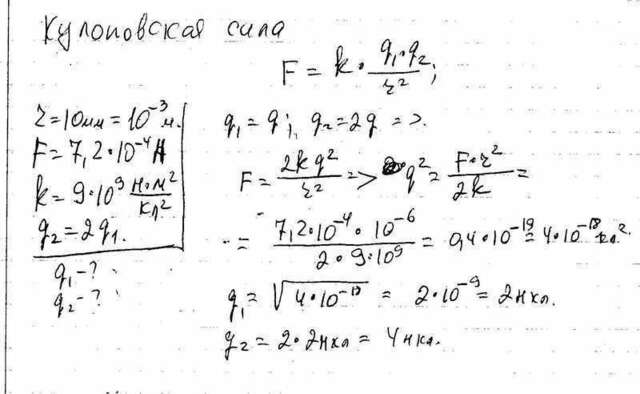 Кулоновская сила
F = k · q₁·q₂/r²;
r = 10мм = 10⁻³ м.
F = 7,2·10⁻⁴ Н
k = 9·10⁹ Н·м²/кл²
q₂ = 2q₁.
q₁ - ?
q₂ - ?
q₁ = q; q₂ = 2q =>.
F = 2kq²/r² => q² = F·r²/2k =
= 7,2·10⁻⁴·10⁻⁶/2·9·10⁹ = 0,4·10⁻¹⁹ = 4·10⁻¹⁸ кл².
q₁ = √4·10⁻¹⁸ = 2·10⁻⁹ = 2нкл.
q₂ = 2·2нкл = 4нкл.